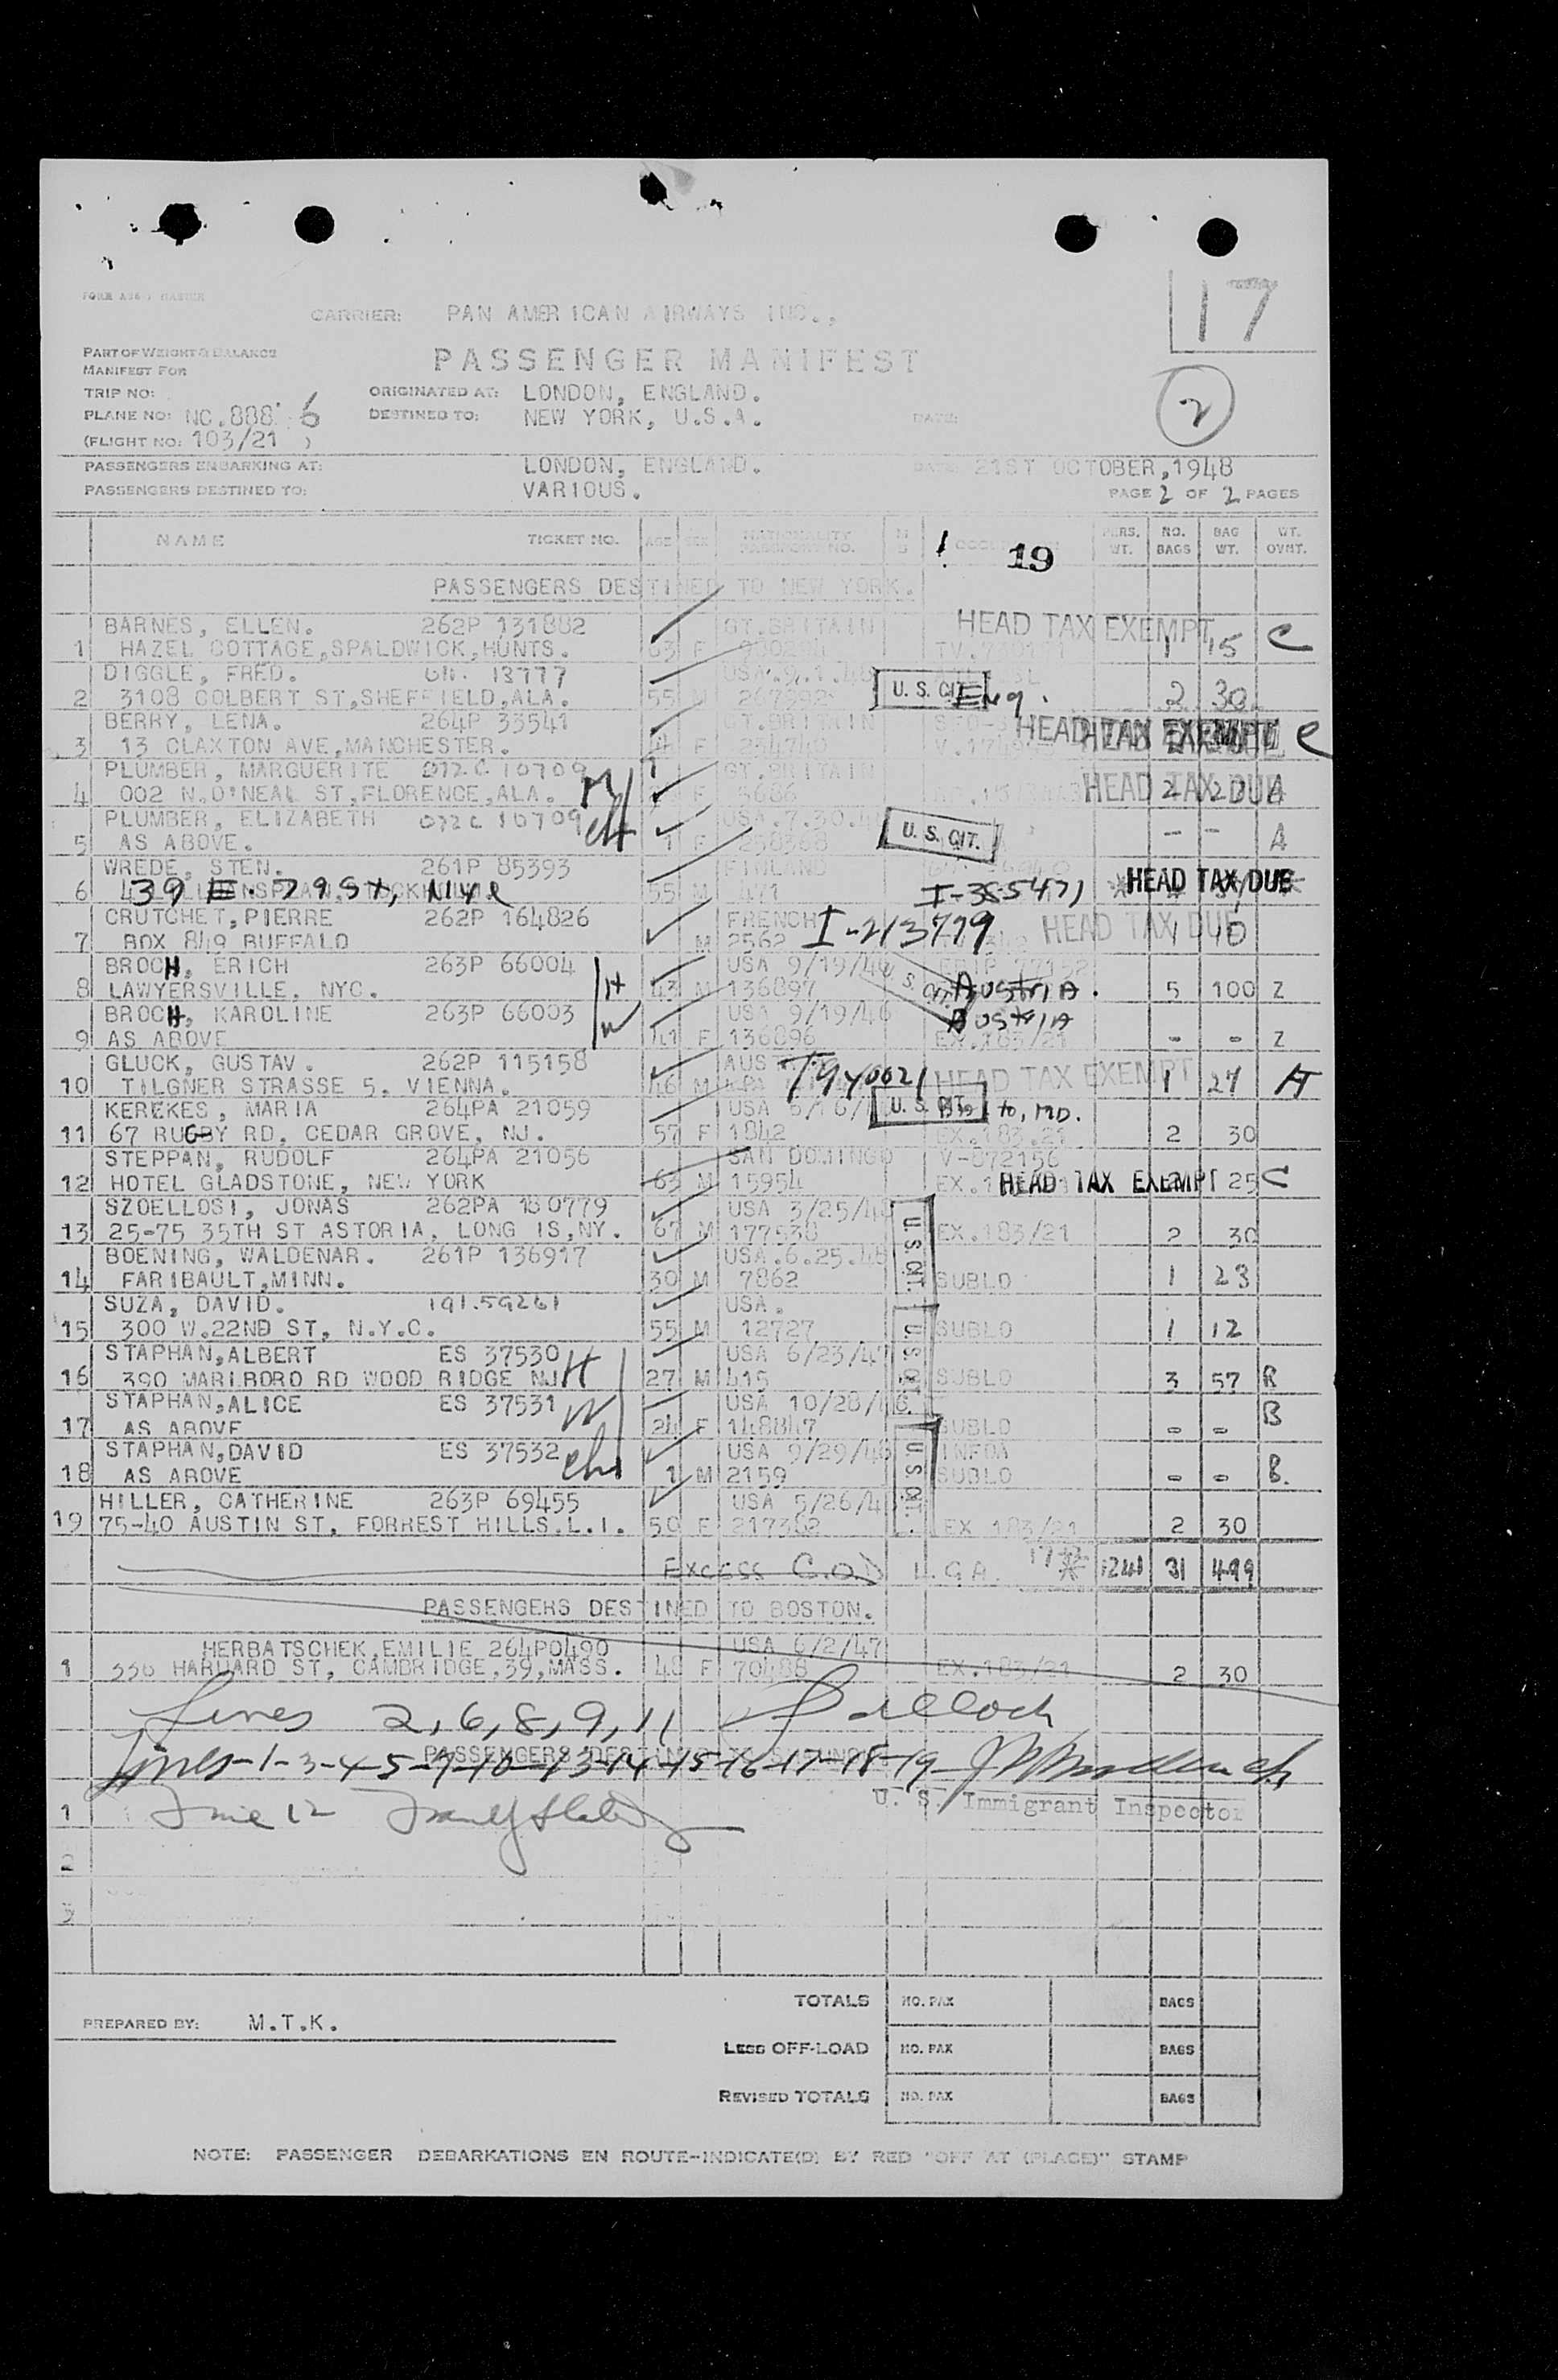 17
CARRIER: PAN AMERICAN AIRWAYS INC.,
PART OF WEIGHT & BALANCE
MANIFEST FOR
PASSENGER MANIFEST
TRIP NO:
ORIGINATED AT: LONDON, ENGLAND.
PLANE NO: NC.888 6
DESTINED TO: NEW YORK, U.S.A.
DATE:
2
(FLIGHT NO: 103/21 )
PASSENGERS EMBARKING AT: LONDON, ENGLAND. DATE: 21ST OCTOBER,1948
PASSENGERS DESTINED TO: VARIOUS. PAGE 2 OF 2 PAGES
NAME TICKET NO. AGE SEX NATIONALITY PASSPORT NO. 19 PERS. WT. NO. BAGS BAG WT. WT. OVHT.
PASSENGERS DESTINED TO NEW YORK.
BARNES, ELLEN. 262P 131882 GT.BRITAIN HEAD TAX EXEMPT
1 HAZEL COTTAGE,SPALDWICK,HUNTS. 63 F 1 15 C
DIGGLE, FRED. 13777 USA.9.1.48
2 3108 COLBERT ST,SHEFFIELD,ALA. 55 M U. S. CIT. Eng. 2 30
BERRY, LENA. 264P 33541 GT.BRITAIN HEAD TAX EXEMPT
3 13 CLAXTON AVE,MANCHESTER. F C
PLUMBER, MARGUERITE 072C 10709 GT.BRITAIN
4 002 N.O'NEAL ST,FLORENCE,ALA. M F 5686 HEAD TAX DUE A
PLUMBER, ELIZABETH 072C 10709 USA.7.30.48
5 AS ABOVE. ch 1 F 258368 U. S. CIT. - - A
WREDE, STEN. 261P 85393 FINLAND
6 39 E. 79 St, NYC 55 M 471 I-355471 HEAD TAX DUE
CRUTCHET,PIERRE 262P 164826 FRENCH
7 BOX 849 BUFFALO M 2562 I-213779 HEAD TAX DUE 1 10
BROCH, ERICH 263P 66004 USA 9/19/46
8 LAWYERSVILLE, NYC. H 43 M 136897 U. S. CIT. Austria. 5 100 Z
BROCH, KAROLINE 263P 66003 USA 9/19/46 Austria
9 AS ABOVE W 41 F 136896 EX.183/21 - - Z
GLUCK, GUSTAV. 262P 115158
10 TILGNER STRASSE 5, VIENNA. 46 M HEAD TAX EXEMPT 1 27 A
KEREKES, MARIA 264PA 21059 USA
11 67 RUGBY RD, CEDAR GROVE, NJ. 57 F 1842 U. S. CIT. EX.183.21 2 30
STEPPAN, RUDOLF 264PA 21056 SAN DOMINGO V-072156
12 HOTEL GLADSTONE, NEW YORK 63 M 15954 HEAD TAX EXEMPT 25 C
SZOELLOSI, JONAS 262PA 180779 USA 3/25/48
13 25-75 35TH ST ASTORIA, LONG IS,NY. 67 M 177538 U. S. CIT. EX.183/21 2 30
BOENING, WALDENAR. 261P 136917 USA.6.25.48
14 FARIBAULT,MINN. 30 M 7862 SUBLO 1 23
SUZA, DAVID. 191.59261 USA.
15 300 W.22ND ST, N.Y.C. 55 M 12727 SUBLO 1 12
STAPHAN,ALBERT ES 37530 USA 6/23/47
16 390 MARLBORO RD WOOD RIDGE NJ H 27 M 415 U. S. CIT. SUBLO 3 57 B
STAPHAN,ALICE ES 37531 USA 10/28/46
17 AS ABOVE W 24 F 148847 SUBLO - - B
STAPHAN,DAVID ES 37532 USA 9/29/48 INFOA
18 AS ABOVE ch 1 M 2159 U. S. CIT. SUBLO - - B.
HILLER, CATHERINE 263P 69455 USA 5/26/4
19 75-40 AUSTIN ST, FORREST HILLS.L.I. 50 F 217382 EX 183/21 2 30
EXCESS C.O.D 1241 31 499
PASSENGERS DESTINED TO BOSTON.
HERBATSCHEK,EMILIE 264P0490 USA 6/2/47
1 336 HARVARD ST, CAMBRIDGE,39,MASS. 48 F 70488 EX.183/21 2 30
Lines 2,6,8,9,11
PASSENGERS DESTINED TO SHANNON
Lines-1-3-4-5-7-10-13-14-15-16-17-18-19
U. S. Immigrant Inspector
1 Line 12
2
3
TOTALS NO. PAX BAGS
PREPARED BY: M.T.K.
LESS OFF-LOAD NO. PAX BAGS
REVISED TOTALS NO. PAX BAGS
NOTE: PASSENGER DEBARKATIONS EN ROUTE-INDICATE(D) BY RED "OFF AT (PLACE)" STAMP